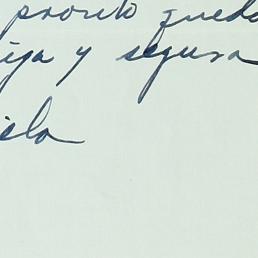 pronto quedo
iga y segura
ela